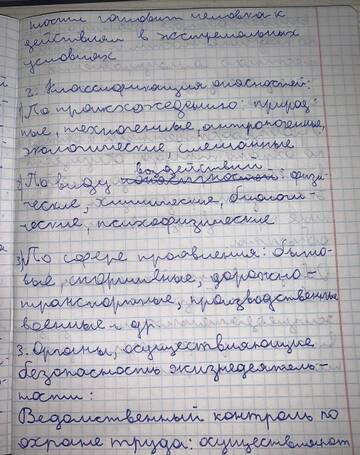 ности готовит человека к
действиям в экстремальных
условиях
2. Классификация опасностей:
1) По происхождению: природ-
ные, техногенные, антропогенные,
экологические, смешанные
воздействий
2) По виду опасностей: физи-
ческие, химические, биологи-
ческие, психофизические
3) По сфере проявления: быто-
вые, спортивные, дорожно-
транспортные, производственные
военные и др.
3. Органы, осуществляющие
безопасность жизнедеятель-
ности:
Ведомственный контроль по
охране труда: осуществляют